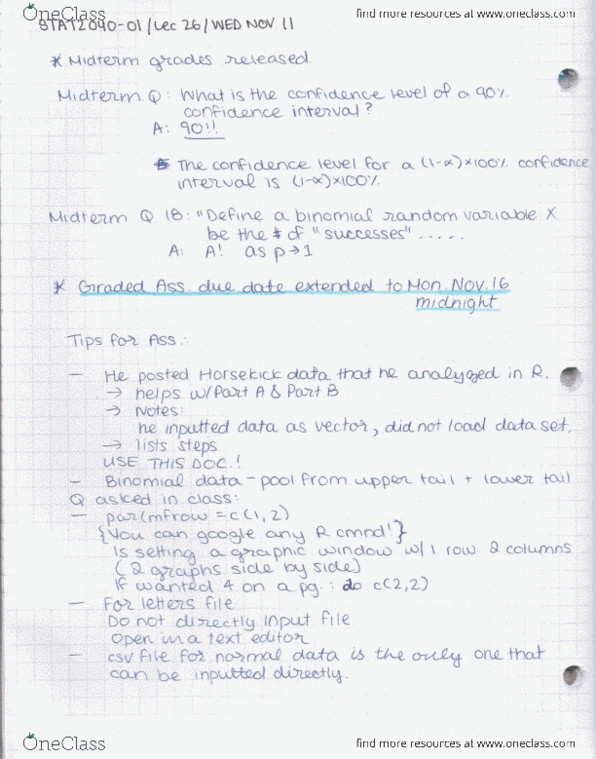 OneClass
find more resources at www.oneclass.com
STAT2040-01/Lec 26/WED NOV 11
* Midterm grades released.
Midterm Q: What is the confidence level of a 90%
confidence interval?
A: 90!!
The confidence level for a (1-α)×100% confidence
interval is (1-α)×100%.
Midterm Q 18: "Define a binomial random variable X
be the # of "successes" .....
A: A! as p→1
* Graded Ass. due date extended to Mon. Nov. 16
midnight
Tips for Ass.:
— He posted Horsekick data that he analyzed in R.
→ helps w/Part A & Part B
→ Notes:
he inputted data as vector, did not load data set.
→ lists steps
USE THIS DOC.!
— Binomial data - pool from upper tail + lower tail
Q asked in class:
— par(mfrow = c(1,2)
{You can google any R cmnd!}
Is setting a graphic window w/1 row 2 columns
(2 graphs side by side)
If wanted 4 on a pg.: do c(2,2)
— For letters file
Do not directly input file
Open in a text editor
— csv file for normal data is the only one that
can be inputted directly.
OneClass
find more resources at www.oneclass.com